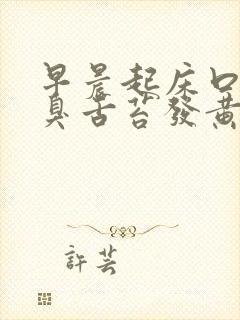 早晨起床口
臭舌苔發黃
許芸